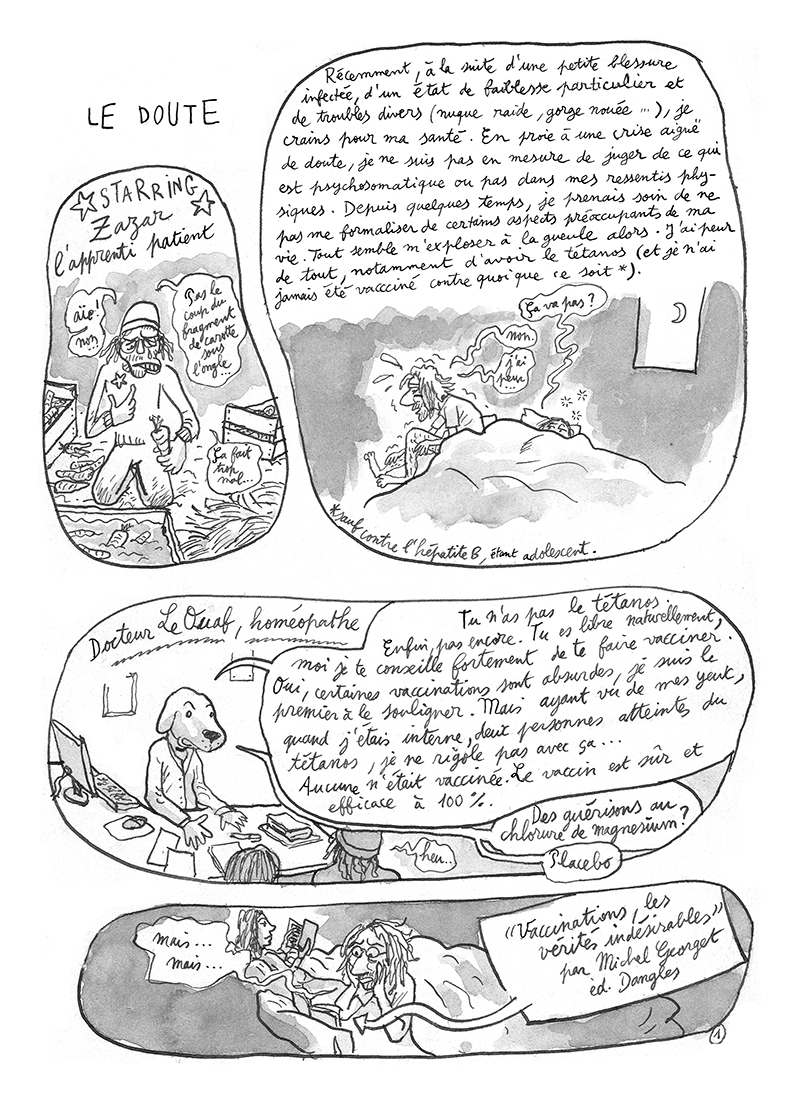 LE DOUTE
STARRING
Zazar
l'apprenti patient
aïe!
non...
Pas le
coup du
fragment
de carotte
sous
l'ongle
Ça fait
trop
mal...
Récemment, à la suite d'une petite blessure
infectée, d'un état de faiblesse particulier et
de troubles divers (nuque raide, gorge nouée ...), je
crains pour ma santé. En proie à une crise aiguë
de doute, je ne suis pas en mesure de juger de ce qui
est psychosomatique ou pas dans mes ressentis phy-
siques. Depuis quelques temps, je prenais soin de ne
pas me formaliser de certains aspects préoccupants de ma
vie. Tout semble m'exploser à la gueule alors. J'ai peur
de tout, notamment d'avoir le tétanos (et je n'ai
jamais été vaccciné contre quoi que ce soit *).
Ça va pas?
non.
j'ai
peur...
*sauf contre l'hépatite B, étant adolescent.
Docteur Le Ouaf, homéopathe
Tu n'as pas le tétanos.
Enfin, pas encore. Tu es libre naturellement,
moi je te conseille fortement de te faire vacciner.
Oui, certaines vaccinations sont absurdes, je suis le
premier à le souligner. Mais ayant vu de mes yeux,
quand j'étais interne, deux personnes atteintes du
tétanos, je ne rigole pas avec ça...
Aucune n'était vaccinée. Le vaccin est sûr et
efficace à 100%.
Des guérisons au
chlorure de magnesium?
heu...
Placebo
mais...
mais...
"Vaccinations, les
vérités indésirables"
par Michel Georget
éd. Dangles
1